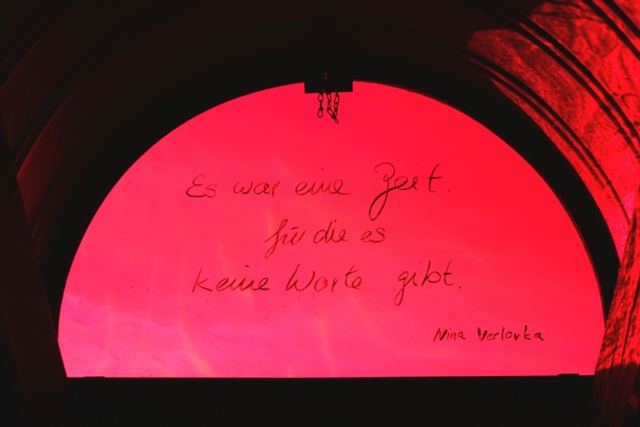 Es war eine Zeit.
für die es
keine Worte gibt.
Nina Verlovka